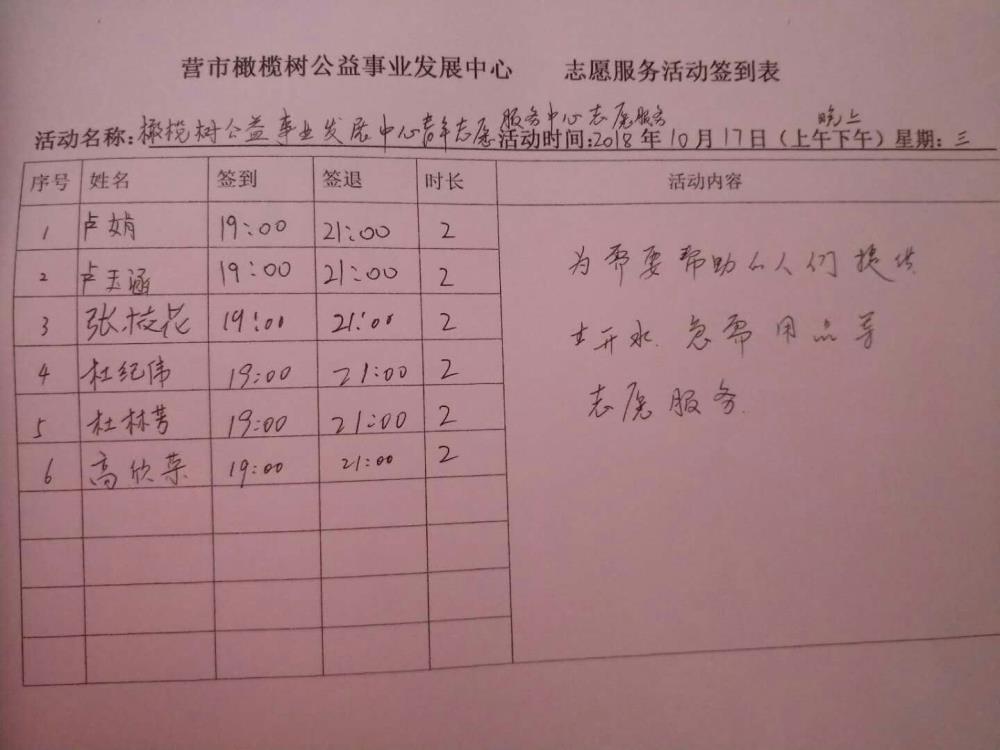 营市橄榄树公益事业发展中心 志愿服务活动签到表
活动名称:橄榄树公益事业发展中心青年志愿服务中心志愿服务 活动时间:2018年10月17日(上午下午)晚上 星期:三
序号 姓名 签到 签退 时长 活动内容
1 卢娟 19:00 21:00 2
2 卢玉涵 19:00 21:00 2
3 张枝花 19:00 21:00 2
4 杜纪伟 19:00 21:00 2
5 杜林芳 19:00 21:00 2
6 高欣荣 19:00 21:00 2
为需要帮助的人们提供
开水.急需用品等
志愿服务.